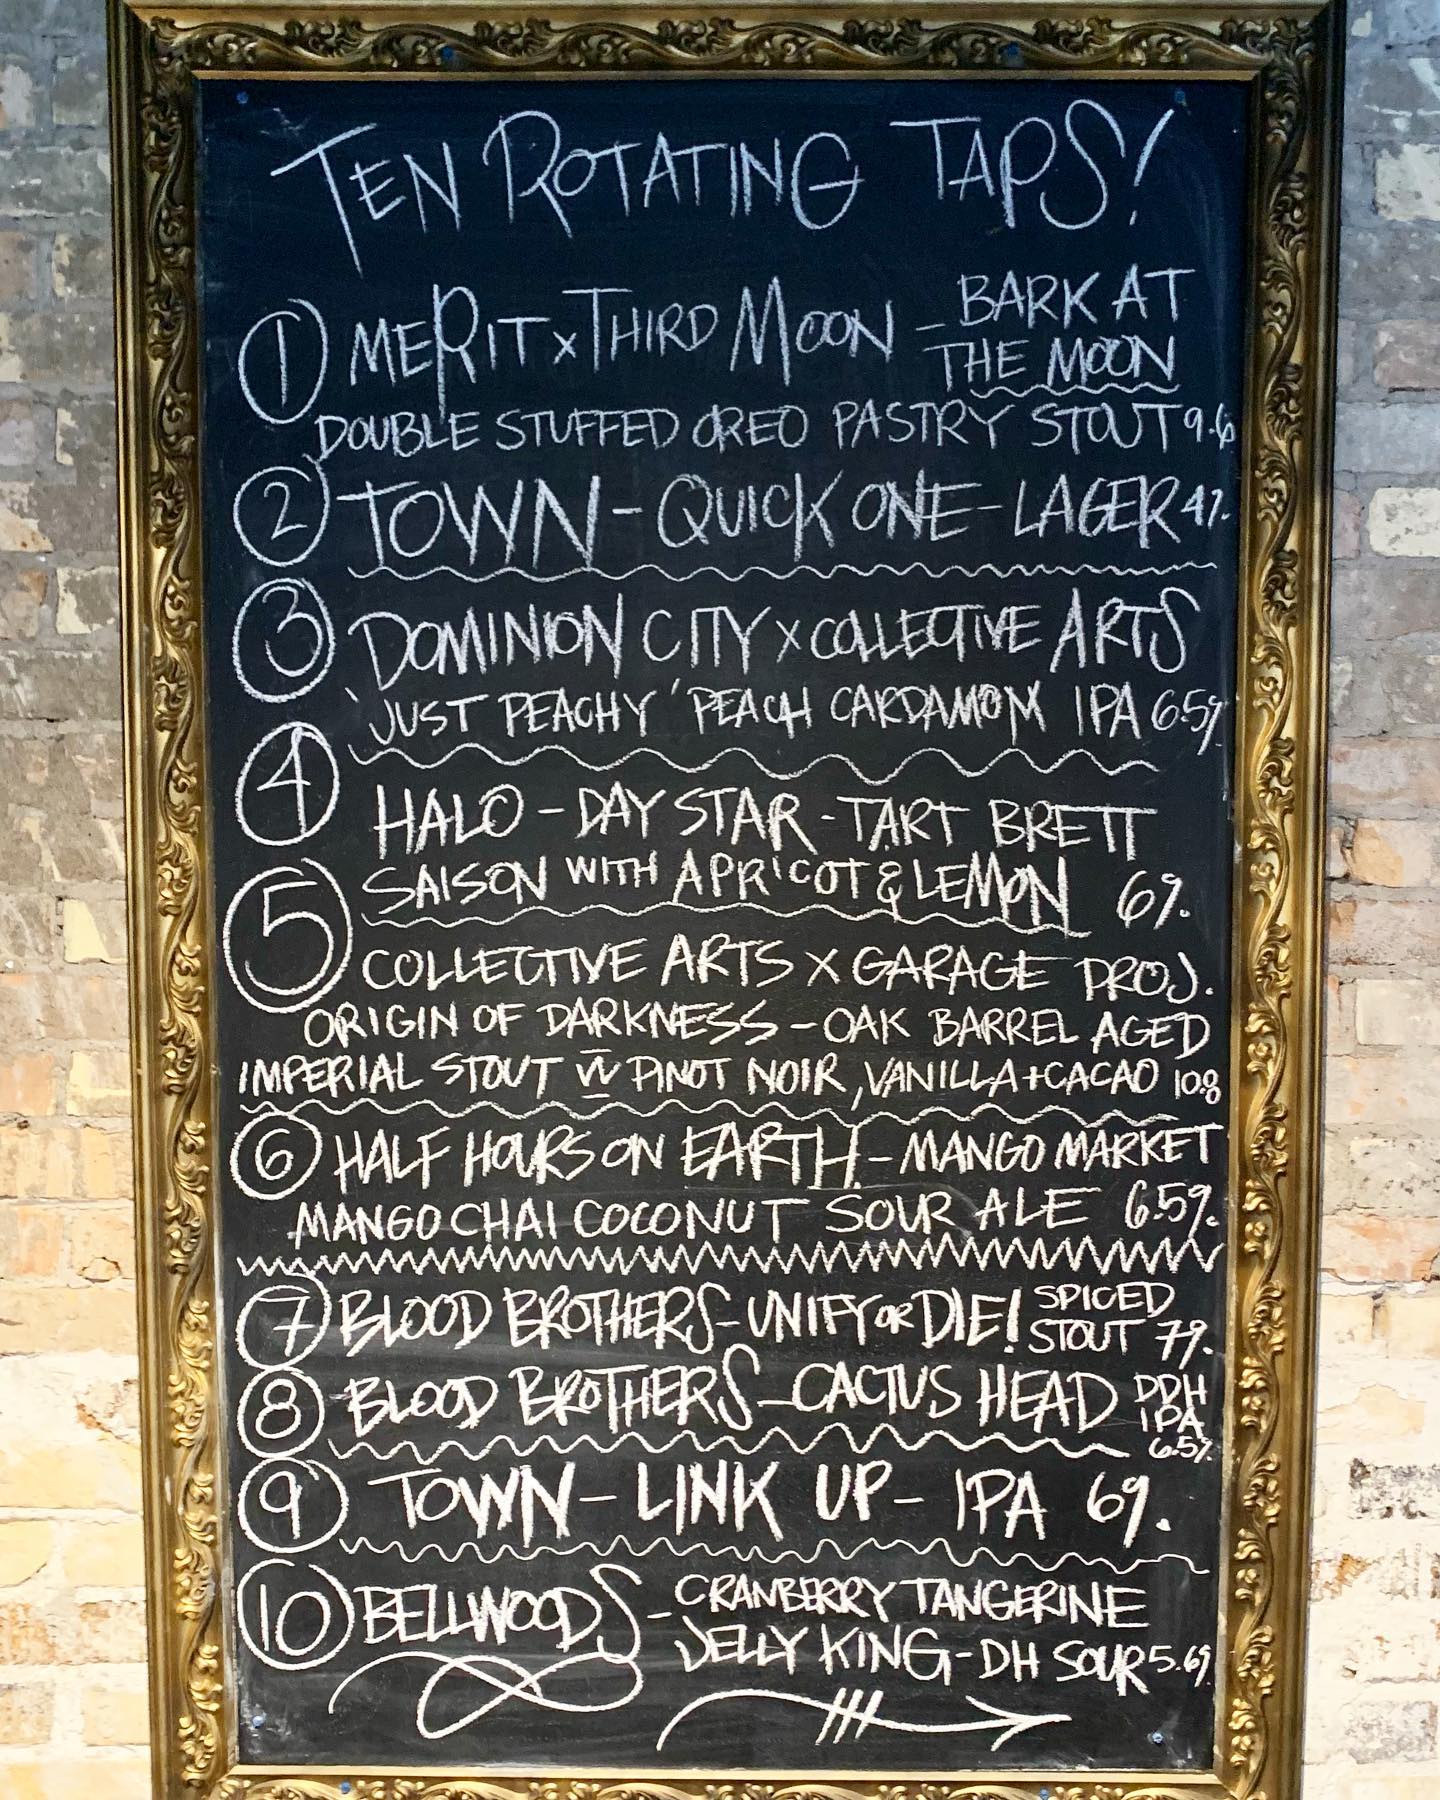 TEN ROTATING TAPS!
1 MERIT x THIRD MOON - BARK AT
THE MOON
DOUBLE STUFFED OREO PASTRY STOUT 9.6
2 TOWN - QUICK ONE - LAGER 4%
3 DOMINION CITY x COLLECTIVE ARTS
'JUST PEACHY' PEACH CARDAMOM IPA 6.5%
4 HALO - DAY STAR - TART BRETT
SAISON WITH APRICOT & LEMON 6%
5 COLLECTIVE ARTS X GARAGE PROJ.
ORIGIN OF DARKNESS - OAK BARREL AGED
IMPERIAL STOUT W PINOT NOIR, VANILLA + CACAO 10.8
6 HALF HOURS ON EARTH - MANGO MARKET
MANGO CHAI COCONUT SOUR ALE 6.5%
7 BLOOD BROTHERS - UNIFY OR DIE! SPICED
STOUT 7%
8 BLOOD BROTHERS - CACTUS HEAD DDH
IPA
6.5%
9 TOWN - LINK UP - IPA 6%
10 BELLWOODS - CRANBERRY TANGERINE
JELLY KING - DH SOUR 5.6%